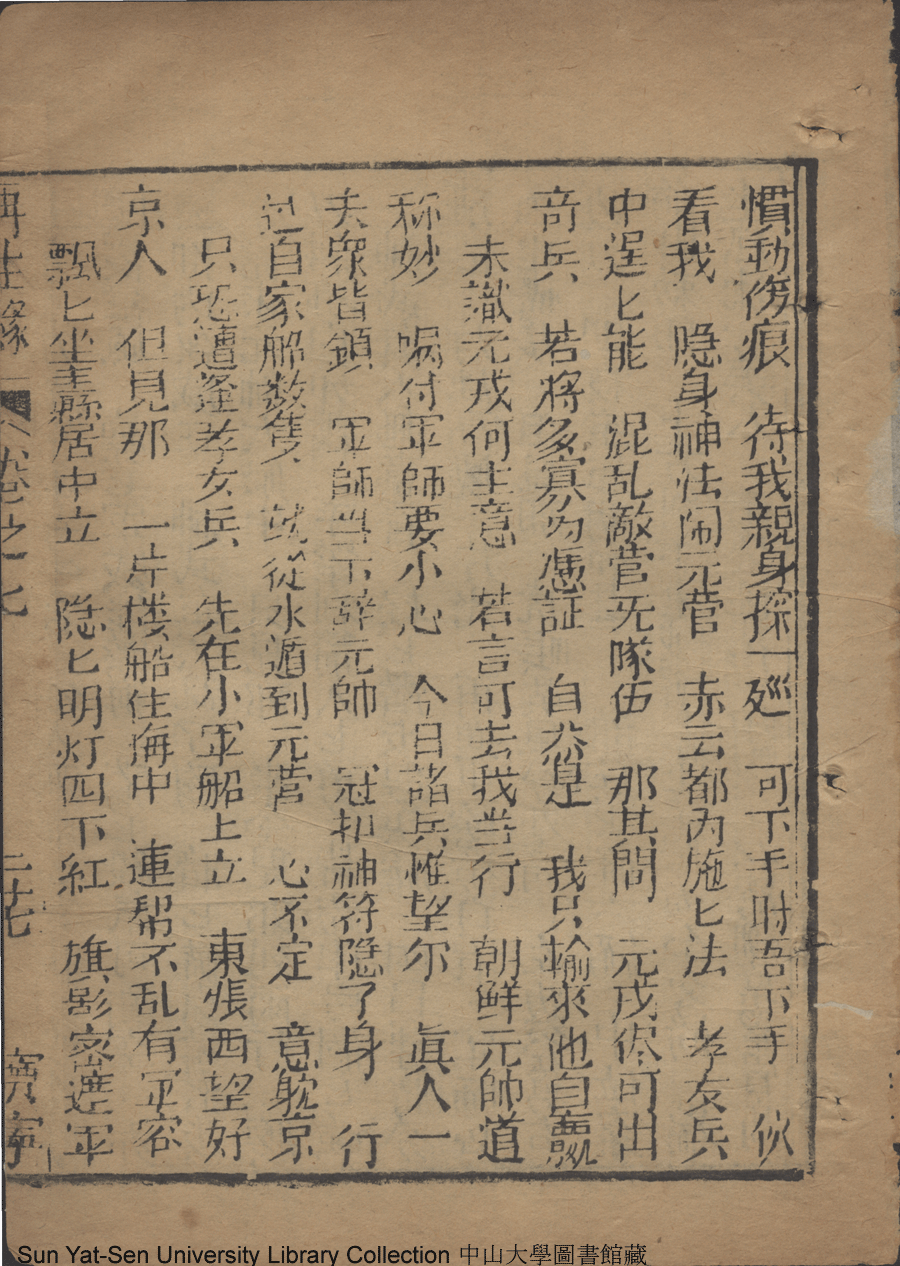 慣動傷痕　待我親身探一廵　可下手时吾下手　伙
看我　隐身神法闹元营　赤云都为施匕法　孝友兵
中逞匕能　混乱敵营旡隊伍　那其間　元戎侭可出
奇兵　若将多寡为凴証　自然是　我只輸來他自贏
未識元戎何主意　若言可去我当行　朝鮮元帥道
称妙　嘱付军師要小心　今日諸兵惟望尔　眞人一
夫衆皆鎖　军師当下辞元帥　冠扣神符隐了身　行
过自家船数隻　就從水遁到元营　心不定　意躭京
只恐遭逢孝女兵　先在小军船上立　東張西望好
京人　但見那　一片楼船住海中　連帮不乱有军容
飄匕坐纛居中立　隐匕明灯四下紅　旗影密遮军
再生縁　卷之十七　二十七　寳寧
Sun Yat-Sen University Library Collection 中山大學圖書館藏